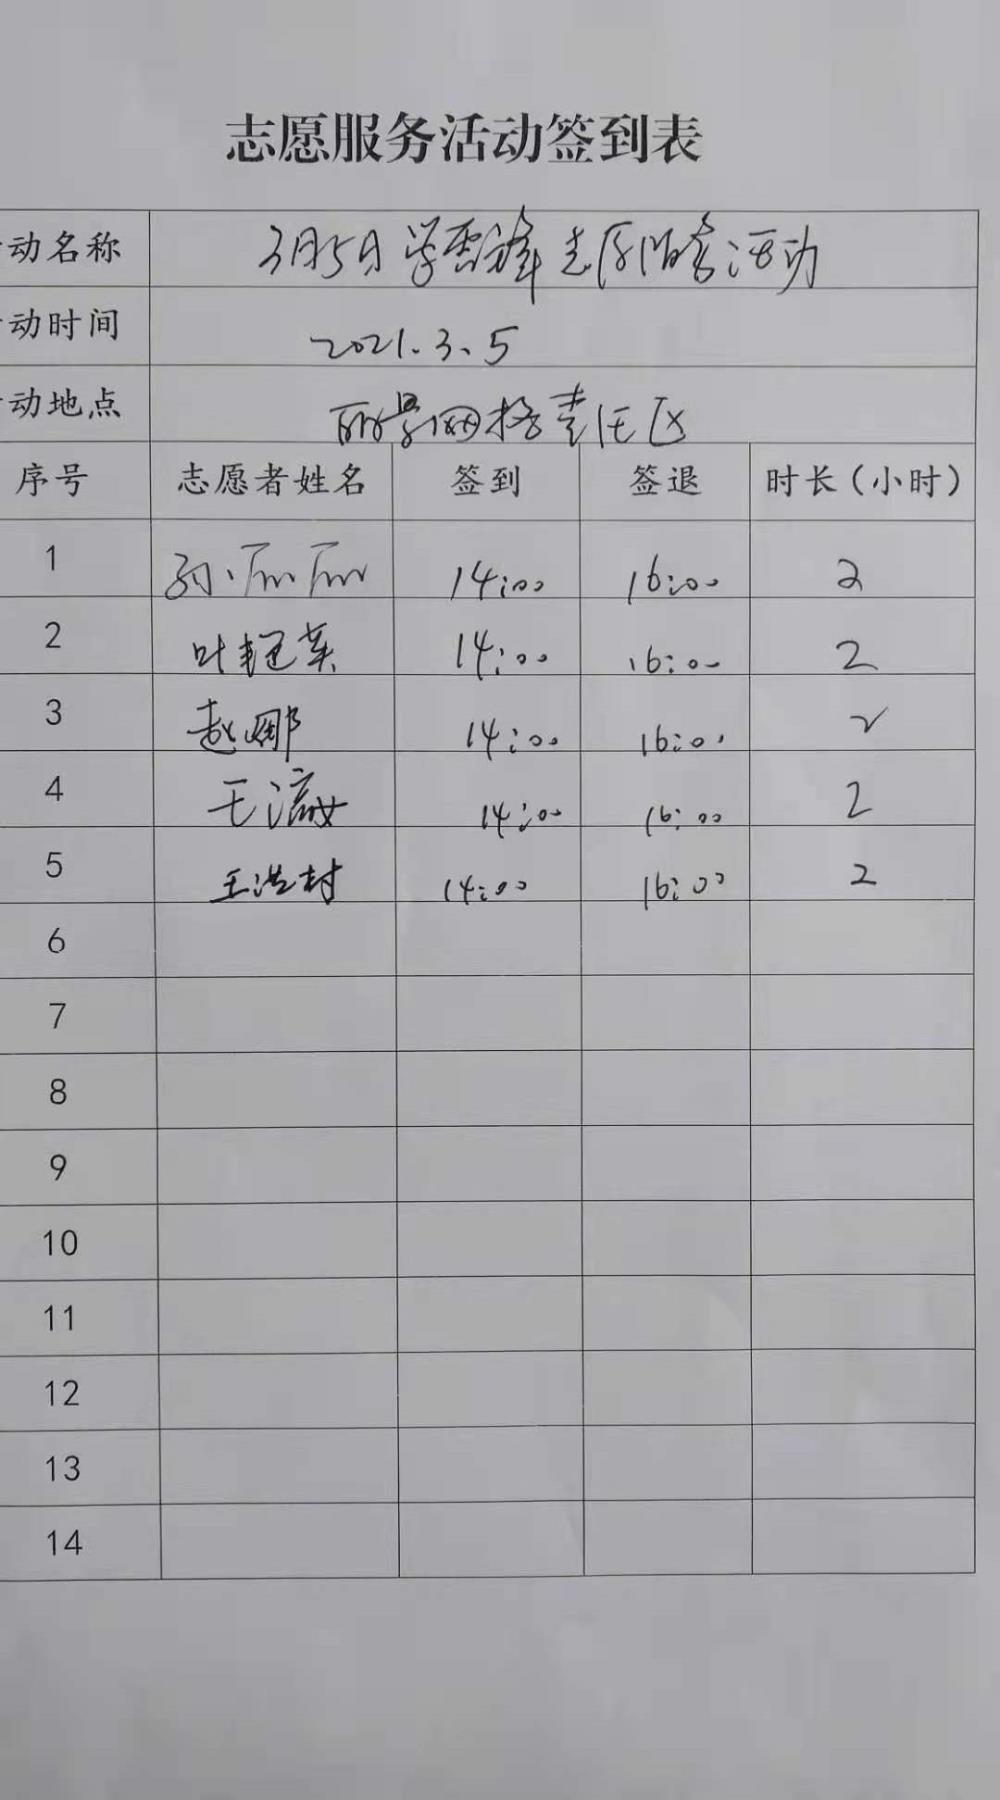 志愿服务活动签到表
动名称 3月5日学雷锋志愿服务活动
动时间 2021.3.5
动地点 丽景网格责任区
序号 志愿者姓名 签到 签退 时长(小时)
1 孙丽丽 14:00 16:00 2
2 叶艳英 14:00 16:00 2
3 赵娜 14:00 16:00 2
4 王 14:00 16:00 2
5 王浩村 14:00 16:00 2
6
7
8
9
10
11
12
13
14